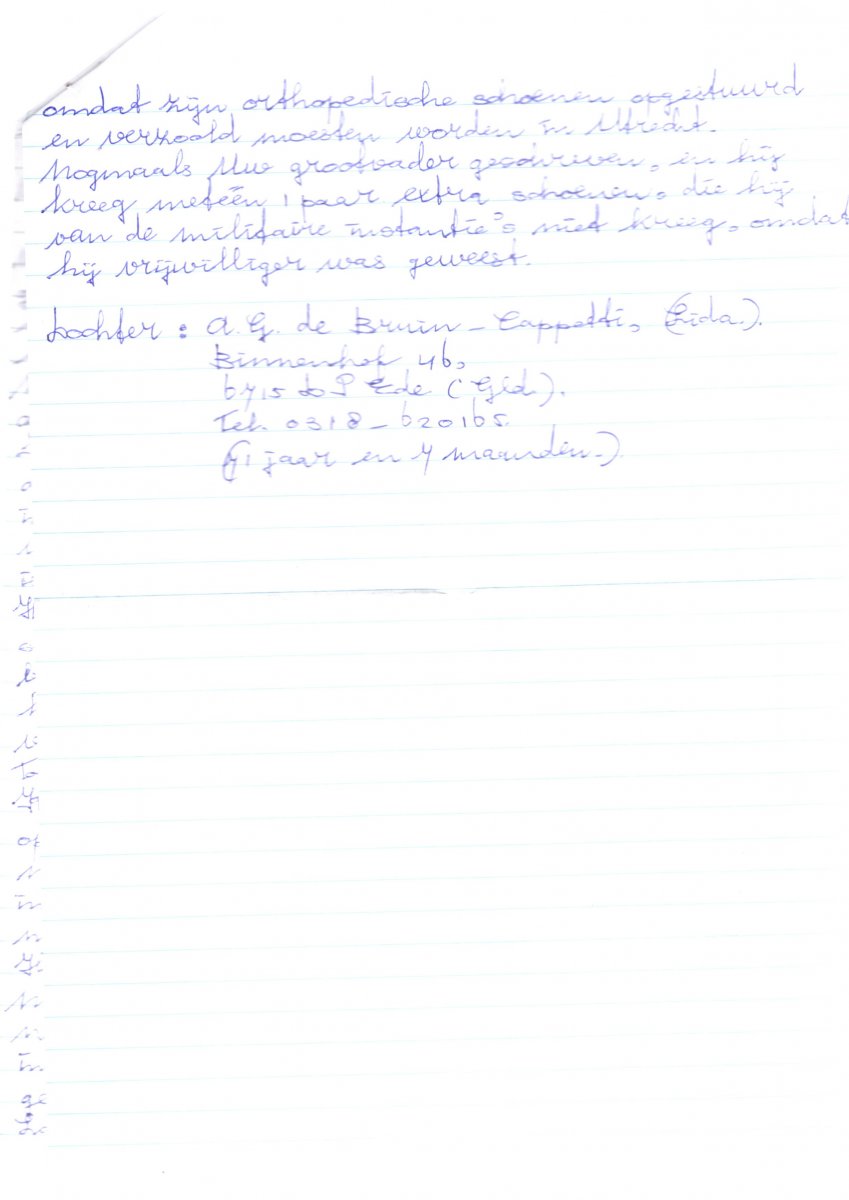 omdat zijn orthopedische schoenen opgestuurd
en verzoold moesten worden in Utrecht.
Nogmaals Uw grootvader geschreven, en hij
kreeg metéén 1 paar extra schoenen, die hij
van de militaire instantie's niet kreeg, omdat
hij vrijwilliger was geweest.
Dochter : A.G. de Bruin - Cappetti, (Zida.).
Binnenhof 46,
6715 DP Ede (Gld.).
Tel. 0318 - 620165
(71 jaar en 7 maanden.)